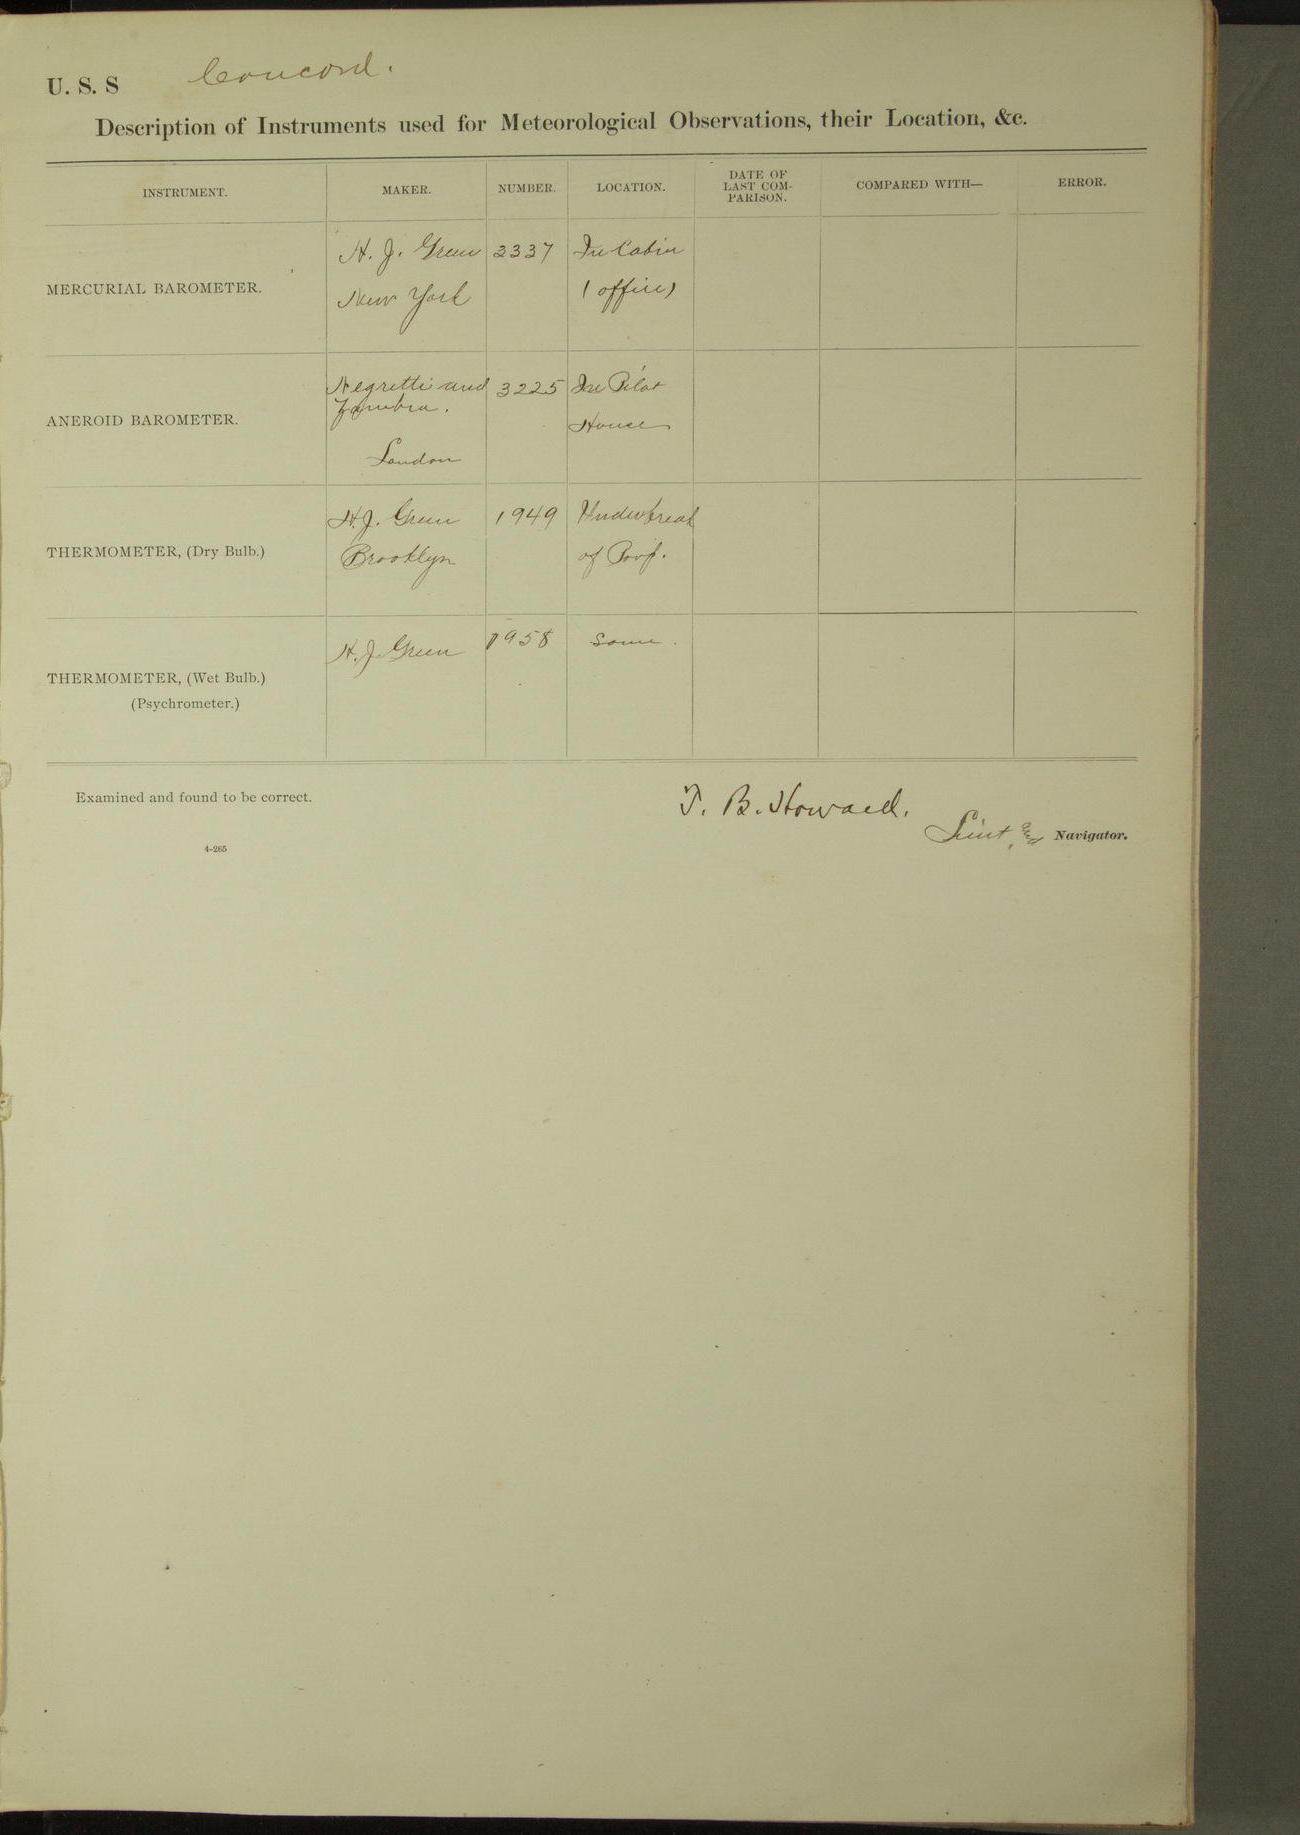 U. S. S Concord.
Description of Instruments used for Meteorological Observations, their Location, &c.
INSTRUMENT. MAKER. NUMBER. LOCATION. DATE OF LAST COM- PARISON. COMPARED WITH— ERROR.
MERCURIAL BAROMETER. H. J. Green 2337 In Cabin
New York (office)
ANEROID BAROMETER. Negretti and 3225 In Pilot
Zambra. House
London
THERMOMETER, (Dry Bulb.) H. J. Green 1949 Under break
Brooklyn of Poop.
THERMOMETER, (Wet Bulb.) H. J. Green 1958 Same.
(Psychrometer.)
Examined and found to be correct. T. B. Howard.
Lieut and Navigator.
4-265